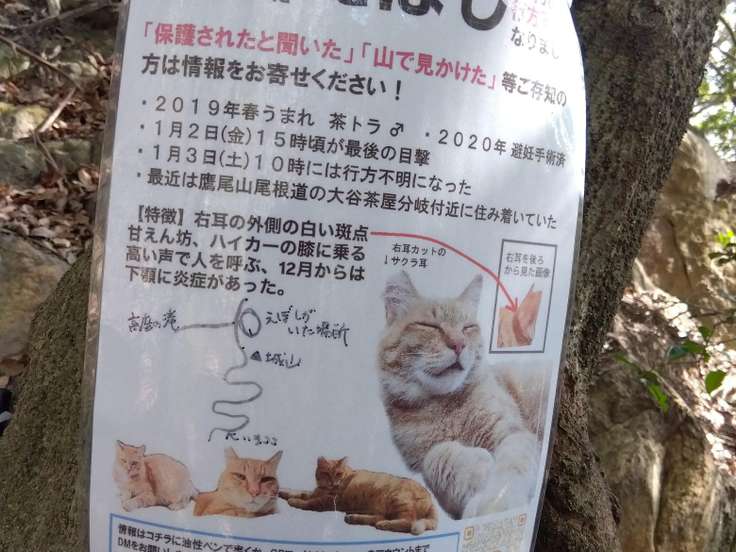 ぼし
行方
なりまし
「保護されたと聞いた」「山で見かけた」等ご存知の
方は情報をお寄せください！
・2019年春うまれ 茶トラ♂ ・2020年 避妊手術済
・1月2日(金)15時頃が最後の目撃
・1月3日(土)10時には行方不明になった
・最近は鷹尾山尾根道の大谷茶屋分岐付近に住み着いていた
【特徴】右耳の外側の白い斑点
甘えん坊、ハイカーの膝に乗る
高い声で人を呼ぶ、12月からは
下顎に炎症があった。
右耳カットの
↓サクラ耳
右耳を後ろ
から見た画像
高座の滝
えぼしが
いた場所
▲城山
情報はコチラに油性ペンで書くか、
DMをお願いし